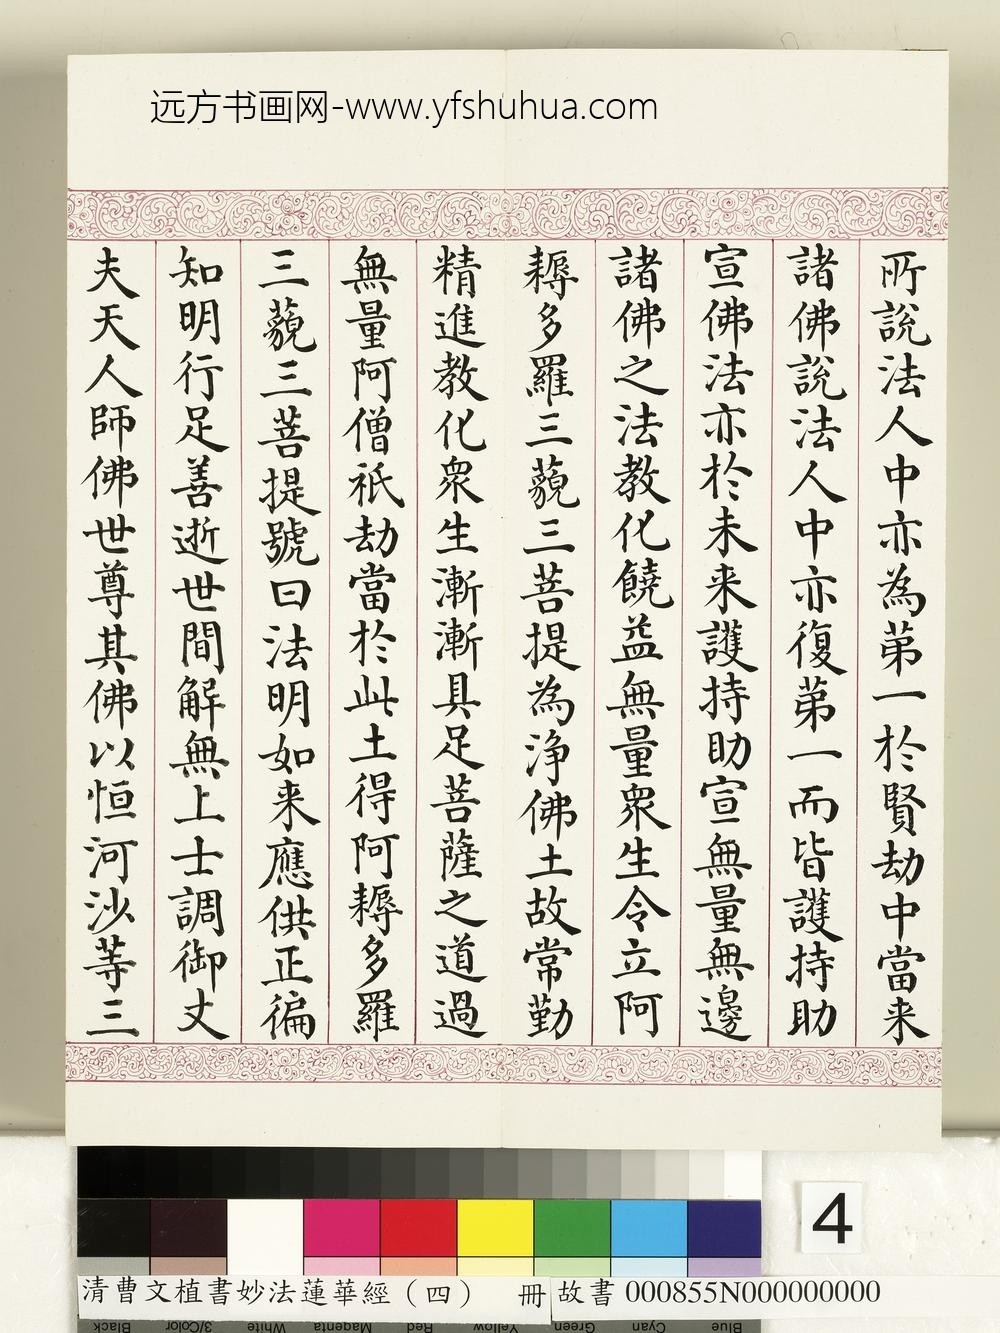 远方书画网-www.yfshuhua.com
所說法人中亦為第一於賢劫中當来
諸佛說法人中亦復第一而皆護持助
宣佛法亦於未来護持助宣無量無邊
諸佛之法教化饒益無量衆生令立阿
耨多羅三藐三菩提為淨佛土故常勤
精進教化衆生漸漸具足菩薩之道過
無量阿僧祇劫當於此土得阿耨多羅
三藐三菩提號曰法明如来應供正徧
知明行足善逝世間解無上士調御丈
夫天人師佛世尊其佛以恒河沙等三
4
清曹文植書妙法蓮華經（四） 冊
故書 000855N000000000
Black 3/Color White Magenta Red Yellow Green Cyan Blue